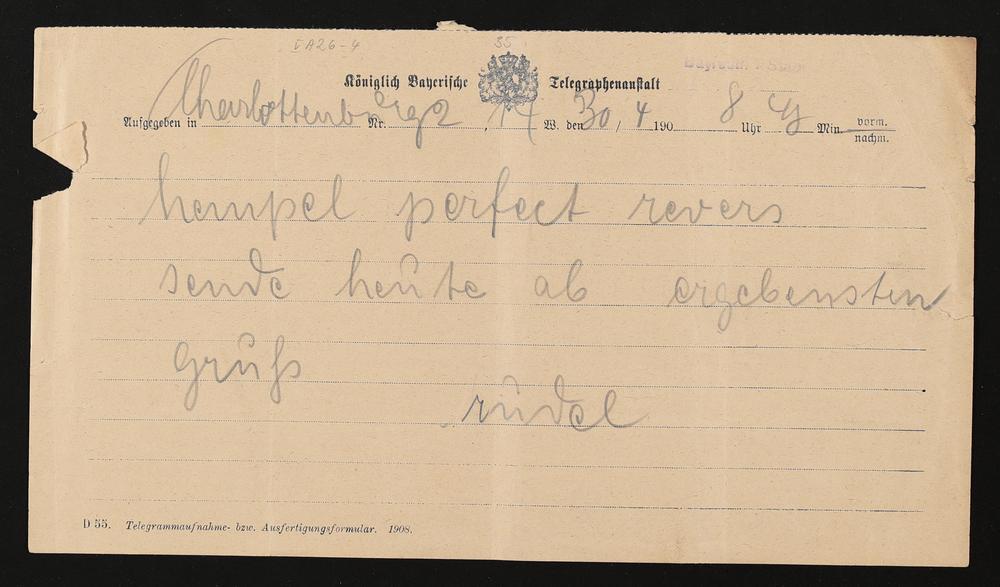 I A26-4 35
Königlich Bayerische Telegraphenanstalt
Aufgegeben in Charlottenburg 2 Nr. , 14 W. den 30 / 4 190 8 Uhr Min. vorm.
nachm.
hempel perfect revers
sende heute ab ergebensten
gruß
rudel
D 55. Telegrammaufnahme- bzw. Ausfertigungsformular. 1908.